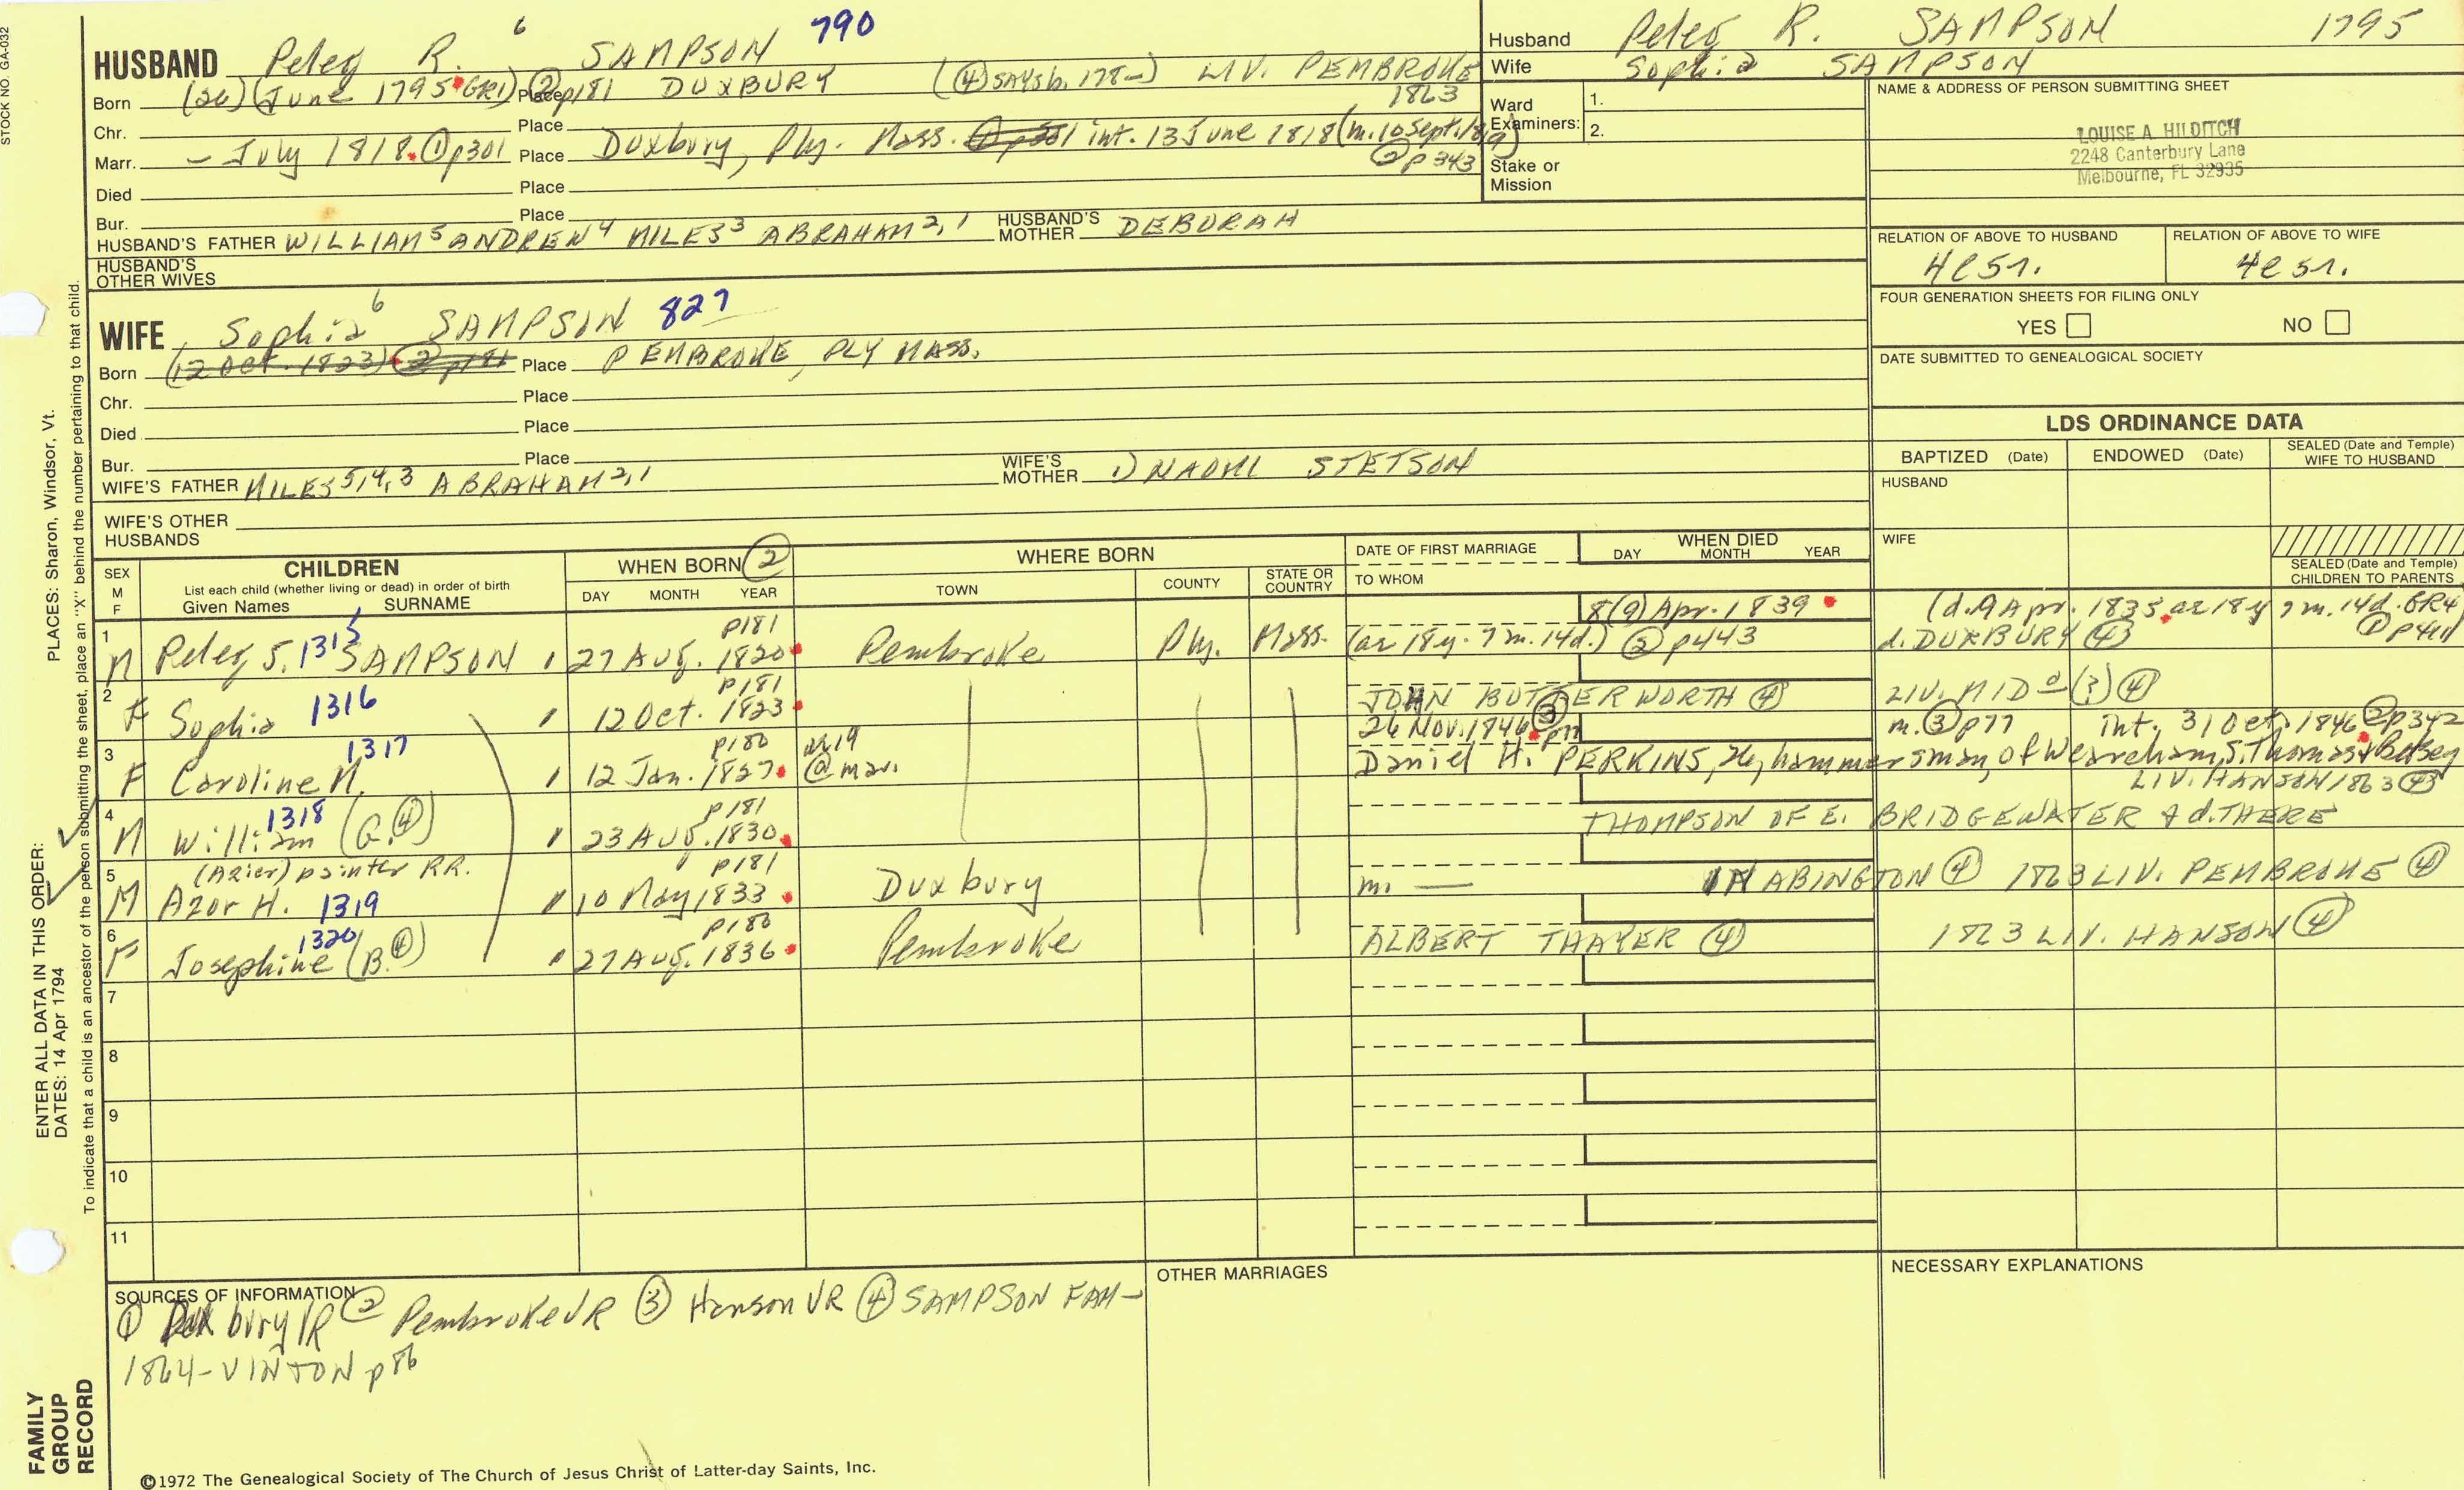 STOCK NO. GA-032
HUSBAND Peleg R. 6 SAMPSON 790
Born (26) (June 1795 GR1) Place ② p181 DUXBURY (④ SAYS b. 178-) LIV. PEMBROKE 1863
Chr. Place
Marr. - July 1818. ① p301 Place Duxbury, Ply. Mass. ① p301 int. 13 June 1818 (m. 10 Sept. 1819) ② p343
Died Place
Bur. Place
HUSBAND'S FATHER WILLIAM5 ANDREW4 MILES3 ABRAHAM2,1 HUSBAND'S MOTHER DEBORAH
HUSBAND'S OTHER WIVES
WIFE Sophia 6 SAMPSON 827
Born (12 Oct. 1823) ② p181 Place PEMBROKE, PLY MASS.
Chr. Place
Died Place
Bur. Place
WIFE'S FATHER MILES5,4,3 ABRAHAM2,1 WIFE'S MOTHER 1) NAOMI STETSON
WIFE'S OTHER HUSBANDS
Husband Peleg R. SAMPSON 1795
Wife Sophia SAMPSON
Ward Examiners: 1.
2.
Stake or Mission
NAME & ADDRESS OF PERSON SUBMITTING SHEET
LOUISE A. HILDITCH
2248 Canterbury Lane
Melbourne, FL 32935
RELATION OF ABOVE TO HUSBAND RELATION OF ABOVE TO WIFE
4C5r. 4C5r.
FOUR GENERATION SHEETS FOR FILING ONLY
YES NO
DATE SUBMITTED TO GENEALOGICAL SOCIETY
LDS ORDINANCE DATA
BAPTIZED (Date) ENDOWED (Date) SEALED (Date and Temple) WIFE TO HUSBAND
HUSBAND
WIFE
SEALED (Date and Temple) CHILDREN TO PARENTS
SEX M F
CHILDREN
List each child (whether living or dead) in order of birth
Given Names SURNAME
WHEN BORN ②
DAY MONTH YEAR
WHERE BORN
TOWN COUNTY STATE OR COUNTRY
DATE OF FIRST MARRIAGE
TO WHOM
WHEN DIED
DAY MONTH YEAR
1 p181 8(9) Apr. 1839 (d. 9 Apr. 1835, ae 18y 7m. 14d. GR4 ① p411
M Peleg S. 1315 SAMPSON 27 Aug. 1820 Pembroke Ply. Mass. (ae 18y. 7m. 14d.) ② p443 d. DUXBURY ④
2 p181 JOHN BUTTERWORTH ④ LIV. MIDo (?) ④
F Sophia 1316 12 Oct. 1823
3 p180 ae 19 26 Nov. 1846 ③ p77 m. ③ p77 int. 31 Oct. 1846 ② p342
F Caroline N. 1317 12 Jan. 1827 @ mar. Daniel H. PERKINS, 26, hammersman, of Weareham, S. Thomas & Betsey
LIV. HANSON 1863 ④
4 p181 THOMPSON OF E. BRIDGEWATER & d. THERE
M William (G. ④) 1318 23 Aug. 1830
5 (Azier) painter RR. p181
M Azor H. 1319 10 May 1833 Duxbury m. — IN ABINGTON ④ 1863 LIV. PEMBROKE ④
6 p180
F Josephine (B. ④) 1320 27 Aug. 1836 Pembroke ALBERT THAYER ④ 1863 LIV. HANSON ④
7
8
9
10
11
SOURCES OF INFORMATION
① Duxbury VR ② Pembroke VR ③ Hanson VR ④ SAMPSON FAM-
1864-VINTON p86
OTHER MARRIAGES
NECESSARY EXPLANATIONS
©1972 The Genealogical Society of The Church of Jesus Christ of Latter-day Saints, Inc.
PLACES: Sharon, Windsor, Vt.
ENTER ALL DATA IN THIS ORDER:
DATES: 14 Apr 1794
To indicate that a child is an ancestor of the person submitting the sheet, place an "X" behind the number pertaining to that child.
FAMILY
GROUP
RECORD